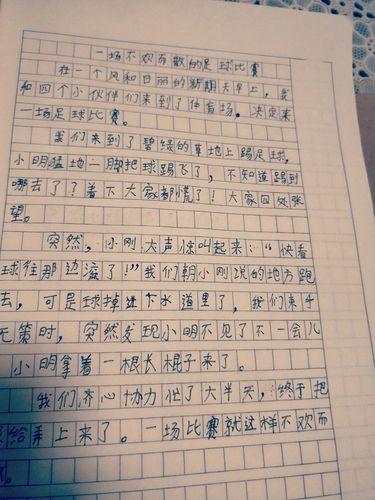 一场不欢而散的足球比赛
在一个风和日丽的新期天早上，我
和四个小伙伴们来到了体育场。决定来
一场足球比赛。
我们来到了碧绿的草地上踢足球，
小明猛地一脚把球踢飞了，不知道踢到
哪去了？着下大家都慌了！大家四处张
望。
突然，小刚大声惊叫起来：“快看
球往那边滚了！”我们朝小刚说的地方跑
去，可是球掉进下水道里了，我们束手
无策时，突然发现小明不见了不一会儿
小明拿着一根长棍子来了。
我们齐心协力忙了大半天，终于把
给弄上来了。一场比赛就这样不欢而